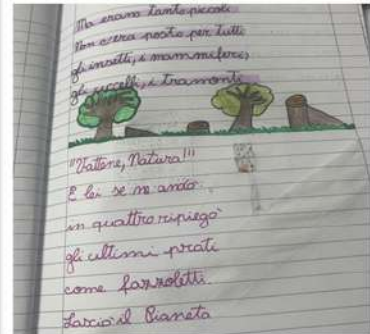 Ma erano tanto piccoli
Non c'era posto per tutti
gli insetti, i mammiferi,
gli uccelli, i tramonti
"Vattene, Natura!!!
E lei se ne andò.
in quattro ripiegò
gli ultimi prati
come fazzoletti.
Lasciò il Pianeta